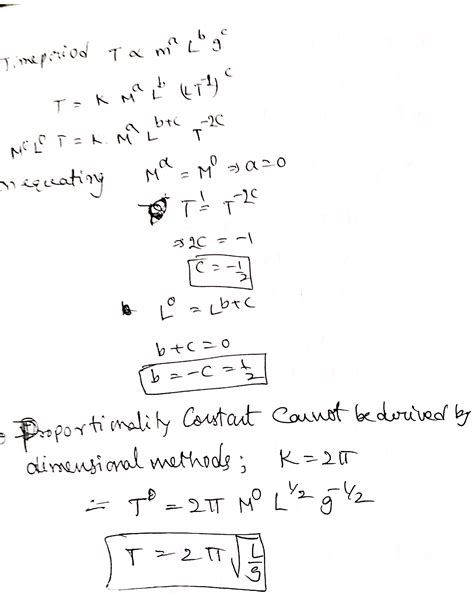 Timeperiod T ∝ m^a L^b g^c
T = K M^a L^b (LT^-1)^c
M^0 L^0 T = K. M^a L^b+c T^-2c
equating M^a = M^0 ⇒ a=0
T^1 = T^-2c
⇒ 2C = -1
C = -1/2
L^0 = L^b+c
b+c=0
b = -c = 1/2
Proportionality Constant Cannot be derived by
dimensional methods; K = 2π
T = 2π M^0 L^1/2 g^-1/2
T = 2π √L/g